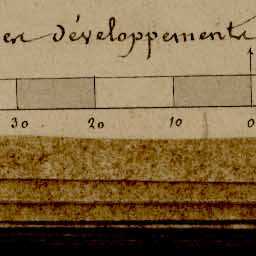 en développements
30 20 10 0